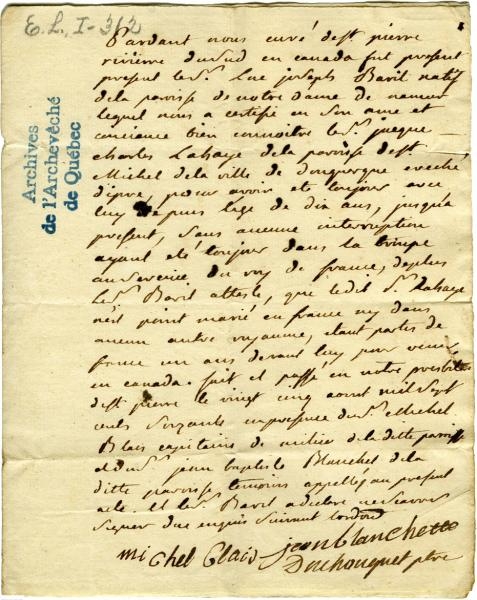 E.L. I-312
Archives
de l'Archevêché
de Québec
Pardant nous curé dest. pierre
rivierre dusud en canada fut present
present le sr. Luc joseph Baril natif
dela parroisse de notre dame de namur
lequel nous a certifié en son ame et
conciance bien connoitre le sr. jacque
charles Lahaye dela parroisse dest.
Michel dela ville de donquerque eveché
dipre, pour avoir eté toujour avec
luy depuis lage de dix ans, jusqua
present, sans aucune interruption
ayant eté toujour dans la troupe
au service du roy de france, deplus
le sr. Baril atteste, que ledit sr. Lahaye
nest point marié en france ny dans
aucun autre royaume, etant partis de
france un ans devant luy pour venir
en canada. fait et passé en notre presbitere
dest. pierre le vingt cinq aoust mil sept
cents soixante en presence du sr. Michel
Blais capitaine de milice dela ditte parroisse
et du sr. jean baptiste Blanchet dela
ditte parroisse temoins appellés au present
acte. et le sr. Baril a declaré ne scavoir
signer due enquis suivant lordon
michel Blais jean blanchette
Duchouquet ptre